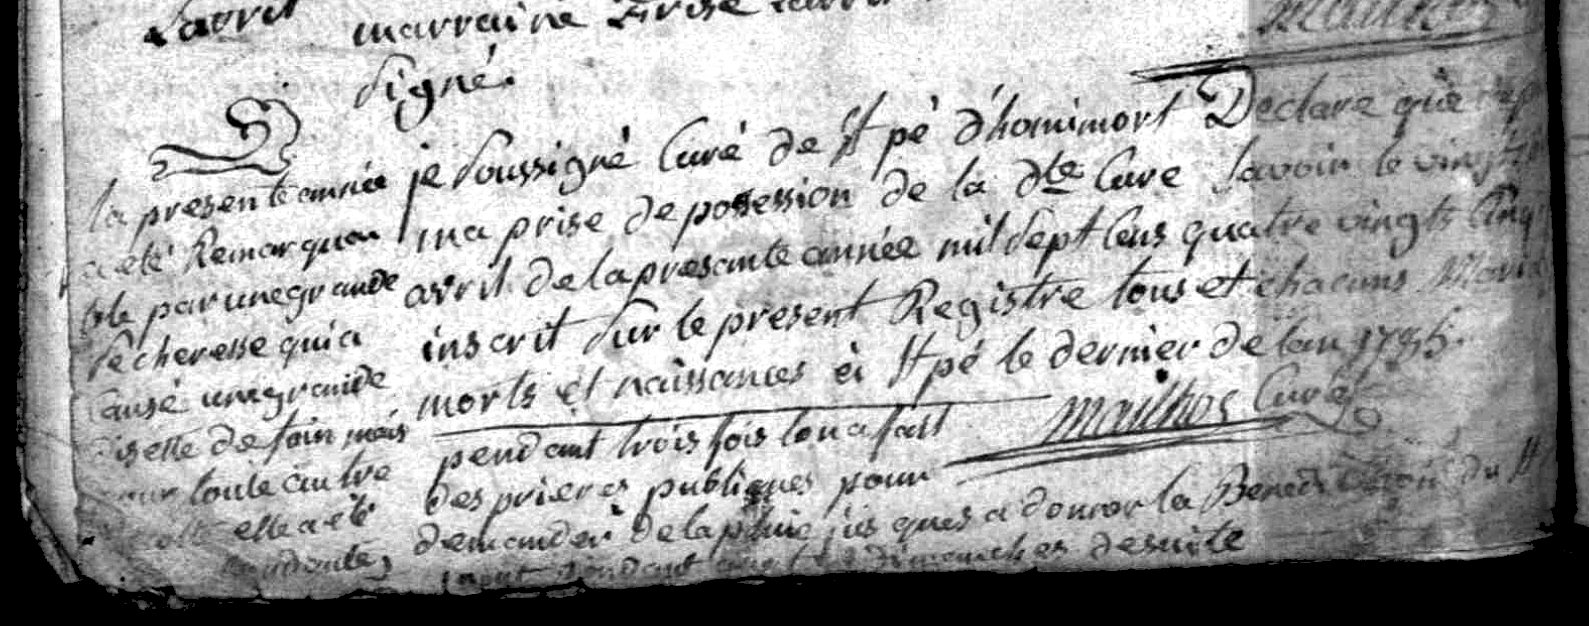 marraine
signé.
la presente année
a eté Remarqua
ble par une grande
secheresse qui a
Causé une grande
disette de foin mais
pour toute autre
elle a eté
je soussigné Curé de St pé d'homimort Declare que
ma prise de possession de la dte Cure savoir le vingt
avril de la presante année mil sept Cens quatre vingts Cinq
inscrit sur le present Registre tous et chacuns
morts et naissances à St pé le dernier de lan 1785.
Mailhos Curé
pendant trois fois lon a fait
des prieres publiques pour
demander de la pluie jusques a donner la Benediction du St
pendant dimenches desuite